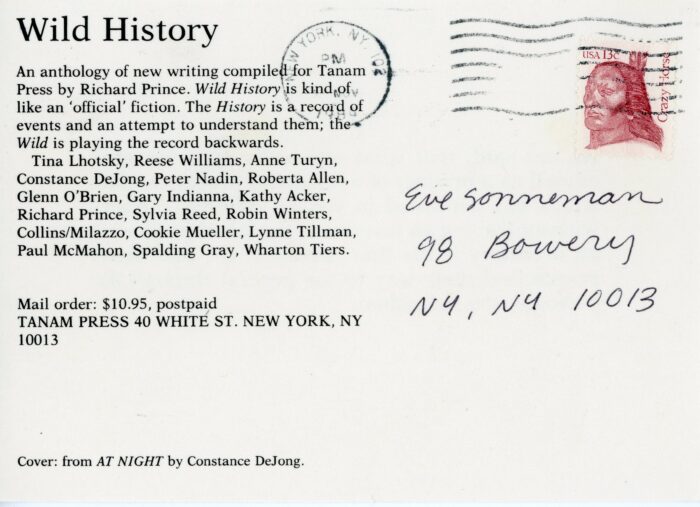 Wild History
An anthology of new writing compiled for Tanam
Press by Richard Prince. Wild History is kind of
like an ‘official’ fiction. The History is a record of
events and an attempt to understand them; the
Wild is playing the record backwards.
Tina Lhotsky, Reese Williams, Anne Turyn,
Constance DeJong, Peter Nadin, Roberta Allen,
Glenn O'Brien, Gary Indianna, Kathy Acker,
Richard Prince, Sylvia Reed, Robin Winters,
Collins/Milazzo, Cookie Mueller, Lynne Tillman,
Paul McMahon, Spalding Gray, Wharton Tiers.
Mail order: $10.95, postpaid
TANAM PRESS 40 WHITE ST. NEW YORK, NY
10013
Cover: from AT NIGHT by Constance DeJong.
NEW YORK, NY
PM
USA 13c
Crazy Horse
Eve Sonneman
98 Bowery
NY, NY 10013